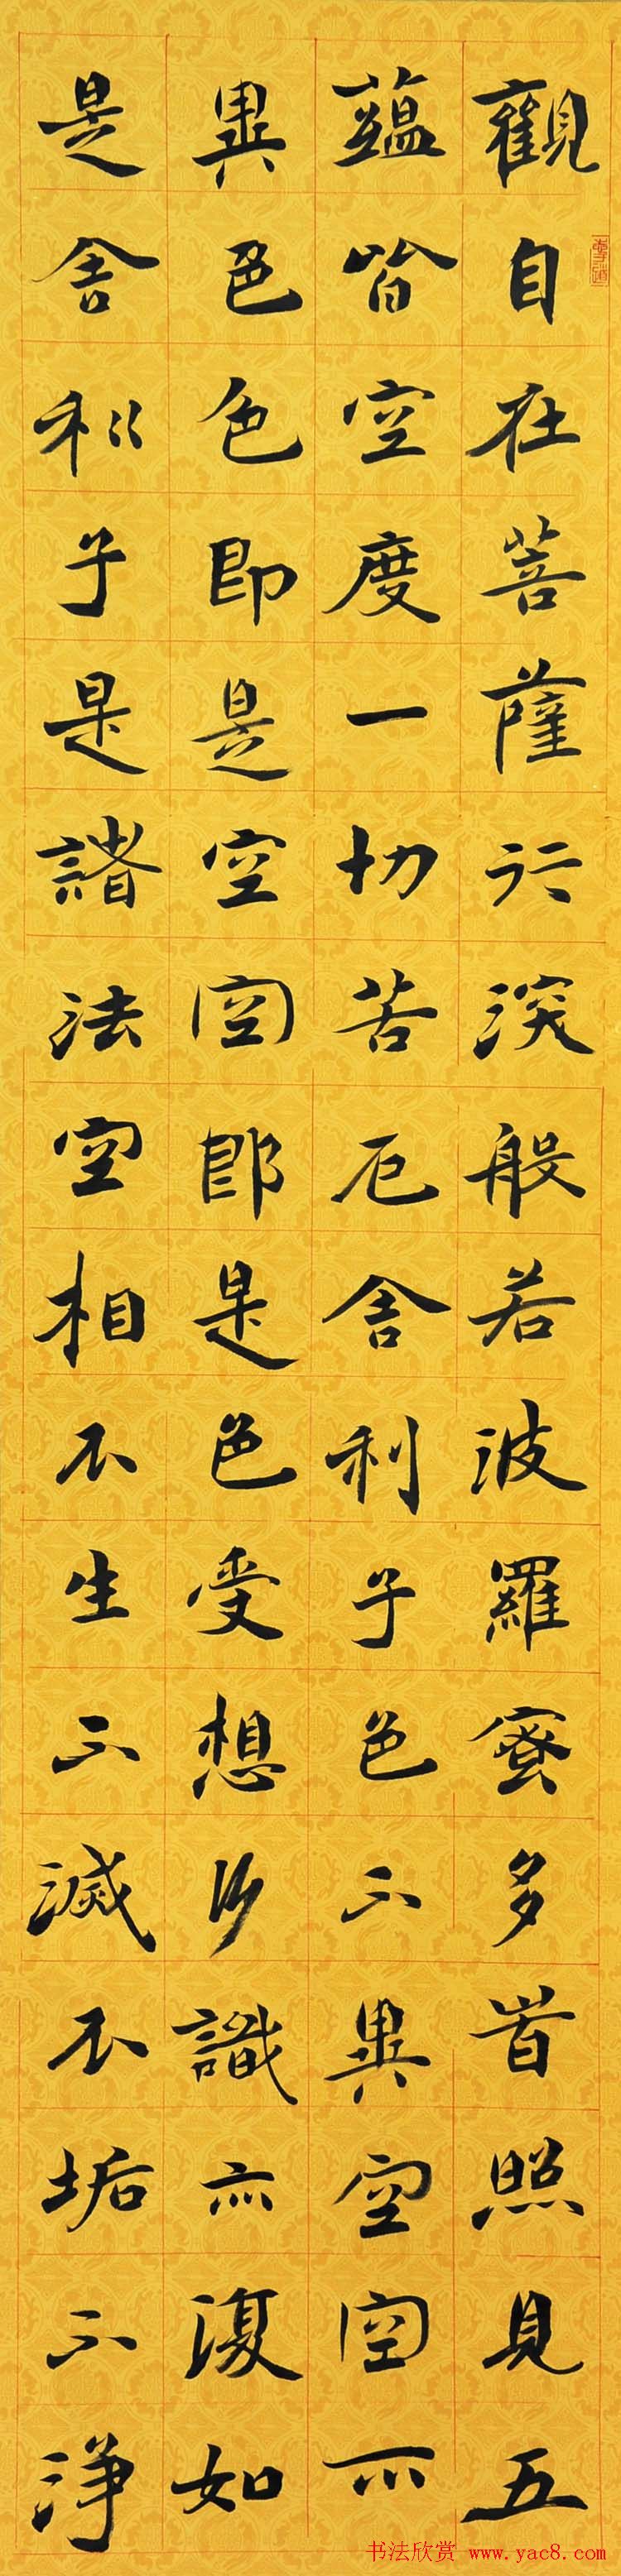 觀自在菩薩行深般若波羅蜜多旹照見五
蘊皆空度一切苦厄舍利子色不異空空不
異色色即是空空即是色受想行識亦復如
是舍利子是諸法空相不生不滅不垢不淨
书法欣赏 www.yac8.com